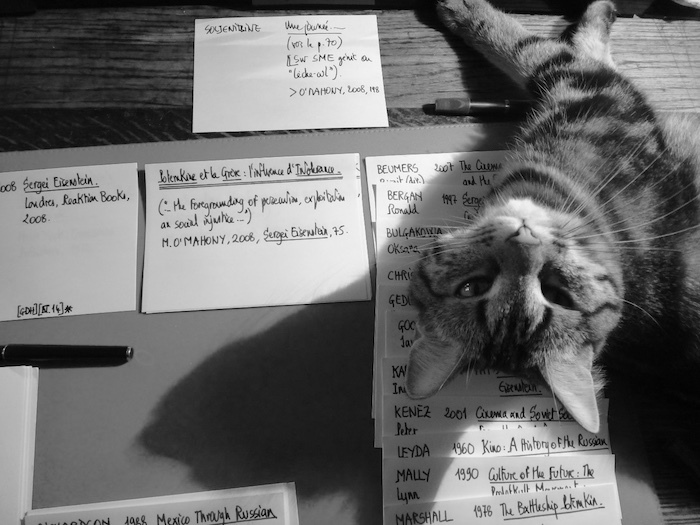 SOLJENITSINE Une journée...
(voir le p. 70)
sur SME génit ou
"lèche-cul").
> O'MAHONY, 2008, 198
2008 Sergei Eisenstein.
Londres, Reaktion Books,
2008.
[GDH][IV.14]*
Potemkine et la Grève : l'influence d'Intolerance.
(".. the foregrounding of persecution, exploitation
and social injustice ..")
M. O'MAHONY, 2008, Sergei Eisenstein, 75.
BEUMERS 2007 The Cinema
and the
BERGAN 1997 Serg
Ronald
BULGAKOWA
Oksana
CHRI
GED
GOO
KA
Eisenstein.
KENEZ 2001 Cinema and Soviet So
Peter
LEYDA 1960 Kino: A History of the Russian
MALLY 1990 Culture of the Future: The
Lynn Proletkult Movement
MARSHALL 1978 The Battleship Potemkin.
RICHARDSON 1988 Mexico Through Russian